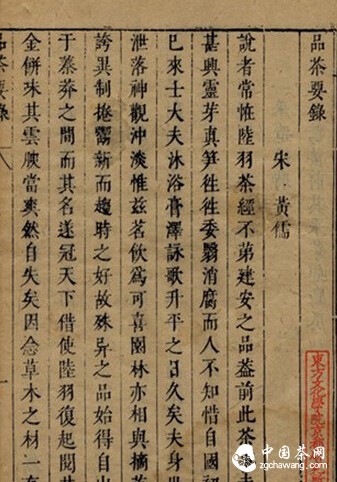 品茶要錄
宋 · 黃儒
說者常恠陸羽茶經不第建安之品葢前此茶
甚興靈芽真笋徃徃委翳消腐而人不知惜自國
已來士大夫沐浴膏澤詠歌升平之日久矣夫身
泄落神觀沖淡惟兹茗飲爲可喜園林亦相與摘
誇異制捲鬻新而趨時之好故殊异之品始得自出
于蓁莽之間而其名遂冠天下借使陸羽復起閱其
金餅珠其雲腴當爽然自失矣因念草木之材一
品茶要錄
東方文化學院京
中国茶网
zgchawang.com